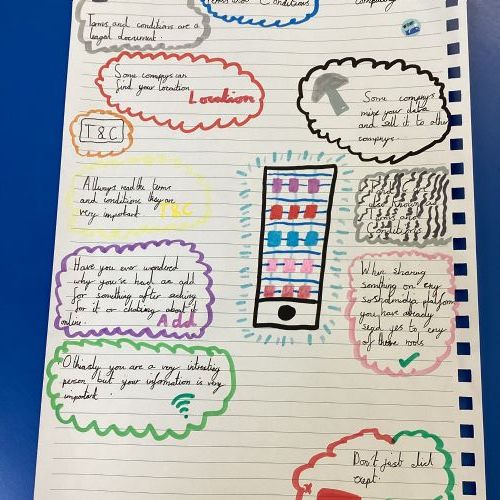 Terms and Conditions
Terms and conditions are a
legal document.
Some compnys can
find your location
Location
Some compnys
mine your data
and sell it to other
compnys
T & C
Always read the terms
and conditions they are
very important
T&C
also known as
Terms and
Conditions
Have you ever wondred
why you've had an add
for something after
for it or chating about it
online.
Add
When sharing
somthing on
platform
you have already
yes to
of these rools
you are a very intresting
person but your information is very
important
Don't just click